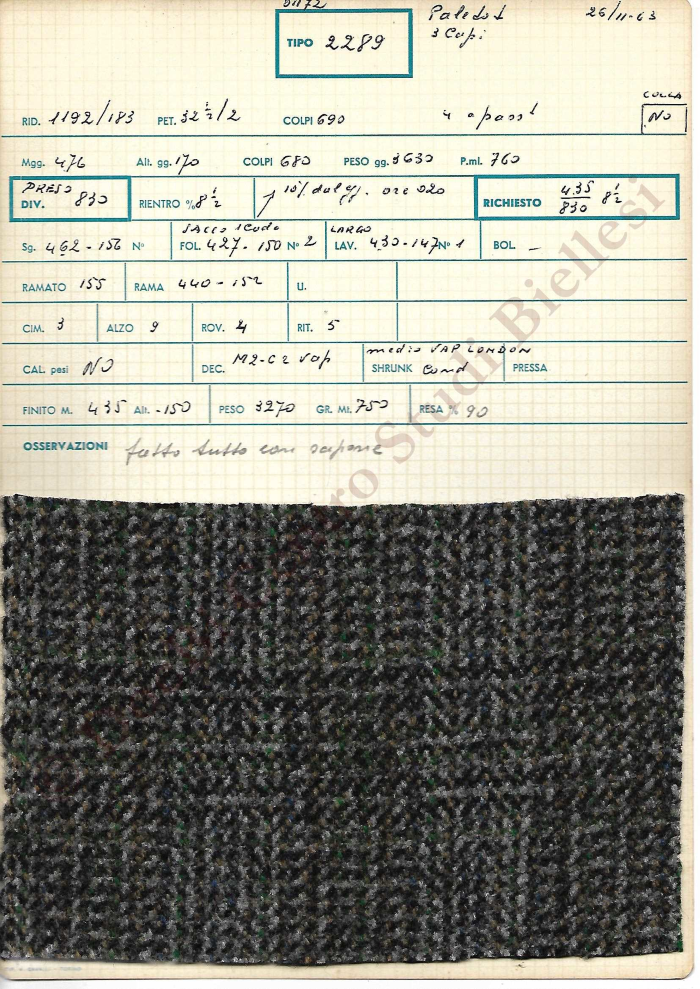 TIPO 2289
3 Capi
26/11-63
RID. 1192/183 PET. 32 1/2 /2 COLPI 690
COLLA
NO
Mgg. 476 Alt. gg. 170 COLPI 680 PESO gg. 3630 P.ml. 760
PRESO
DIV. 830 RIENTRO % 8 1/2 RICHIESTO 435/830 8 1/2
Sg. 462-156 N° FOL. 427-150 N° 2 LARGO LAV. 430-147 N° 1 BOL. –
RAMATO 155 RAMA 440-152 U.
CIM. 3 ALZO 9 ROV. 4 RIT. 5
CAL. pesi NO DEC. M2-C2 Vap medio VAP LONDON SHRUNK Cond PRESSA
FINITO M. 435 Alt. -150 PESO 3270 GR. Mt. 750 RESA % 90
OSSERVAZIONI fatto tutto con sapone
Centro Studi Biellesi